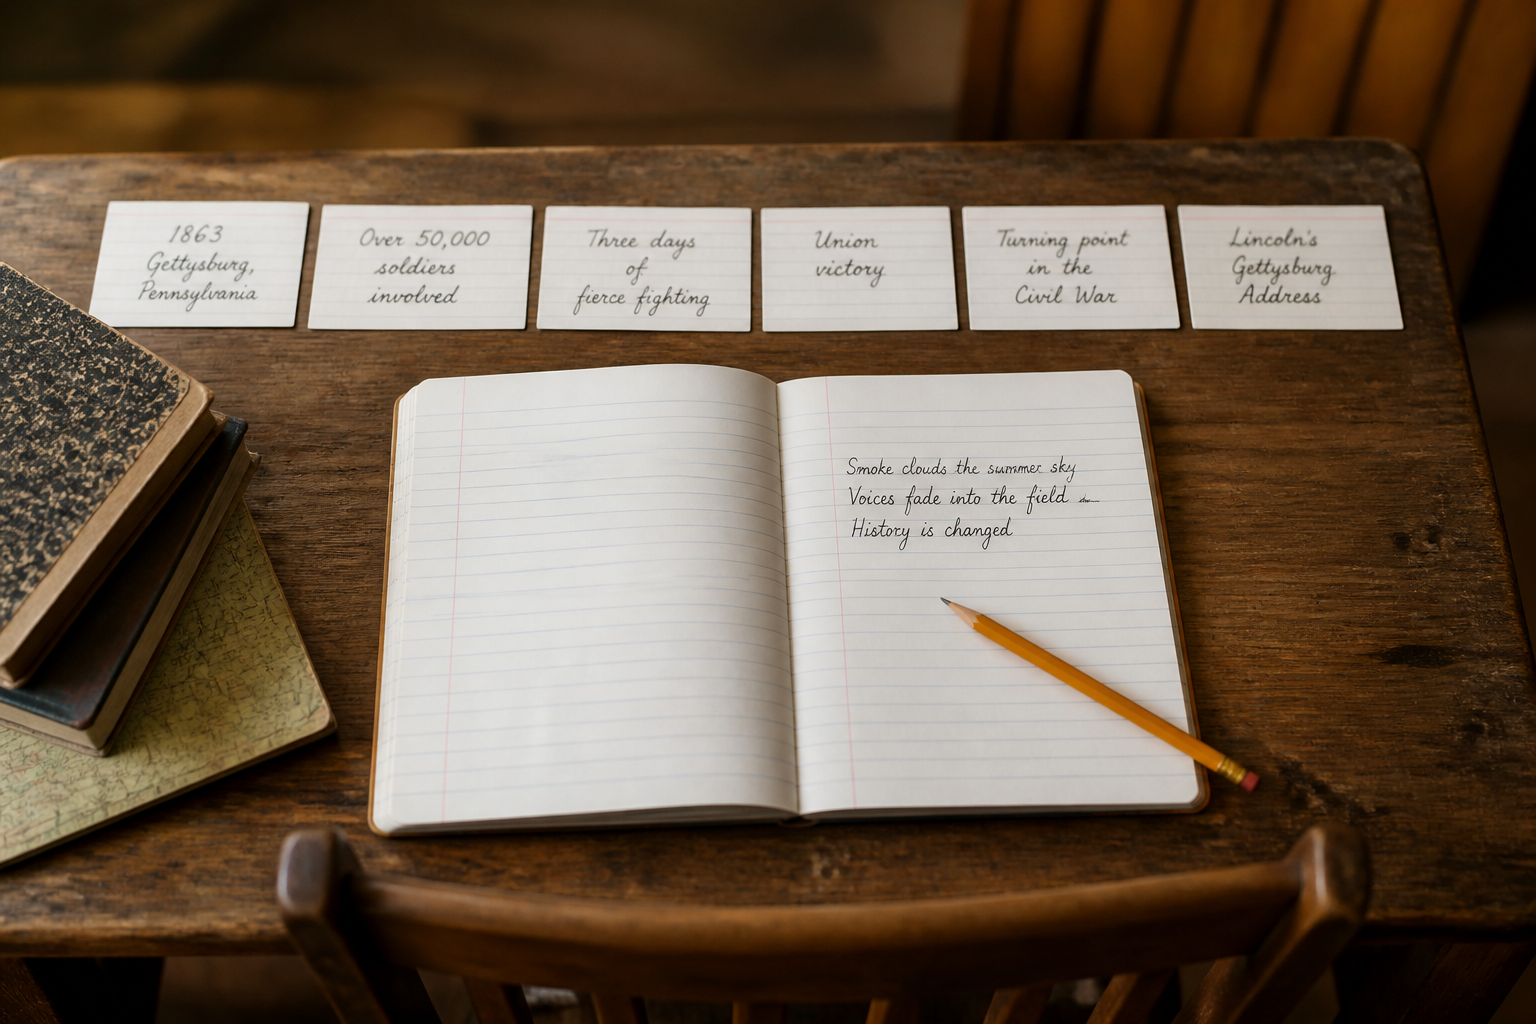 1863
Gettysburg,
Pennsylvania
Over 50,000
soldiers
involved
Three days
of
fierce fighting
Union
victory
Turning point
in the
Civil War
Lincoln's
Gettysburg
Address
Smoke clouds the summer sky
Voices fade into the field
History is changed